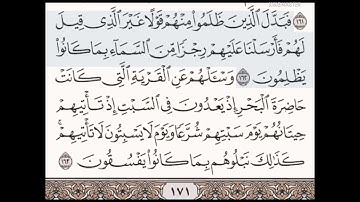 ١٦١ فَبَدَّلَ ٱلَّذِينَ ظَلَمُوا۟ مِنْهُمْ قَوْلًا غَيْرَ ٱلَّذِى قِيلَ
لَهُمْ فَأَرْسَلْنَا عَلَيْهِمْ رِجْزًا مِّنَ ٱلسَّمَآءِ بِمَا كَانُوا۟
يَظْلِمُونَ ١٦٢ وَسْـَٔلْهُمْ عَنِ ٱلْقَرْيَةِ ٱلَّتِى كَانَتْ
حَاضِرَةَ ٱلْبَحْرِ إِذْ يَعْدُونَ فِى ٱلسَّبْتِ إِذْ تَأْتِيهِمْ
حِيتَانُهُمْ يَوْمَ سَبْتِهِمْ شُرَّعًا وَيَوْمَ لَا يَسْبِتُونَ لَا تَأْتِيهِمْ ۚ
كَذَٰلِكَ نَبْلُوهُم بِمَا كَانُوا۟ يَفْسُقُونَ ١٦٣
١٧١